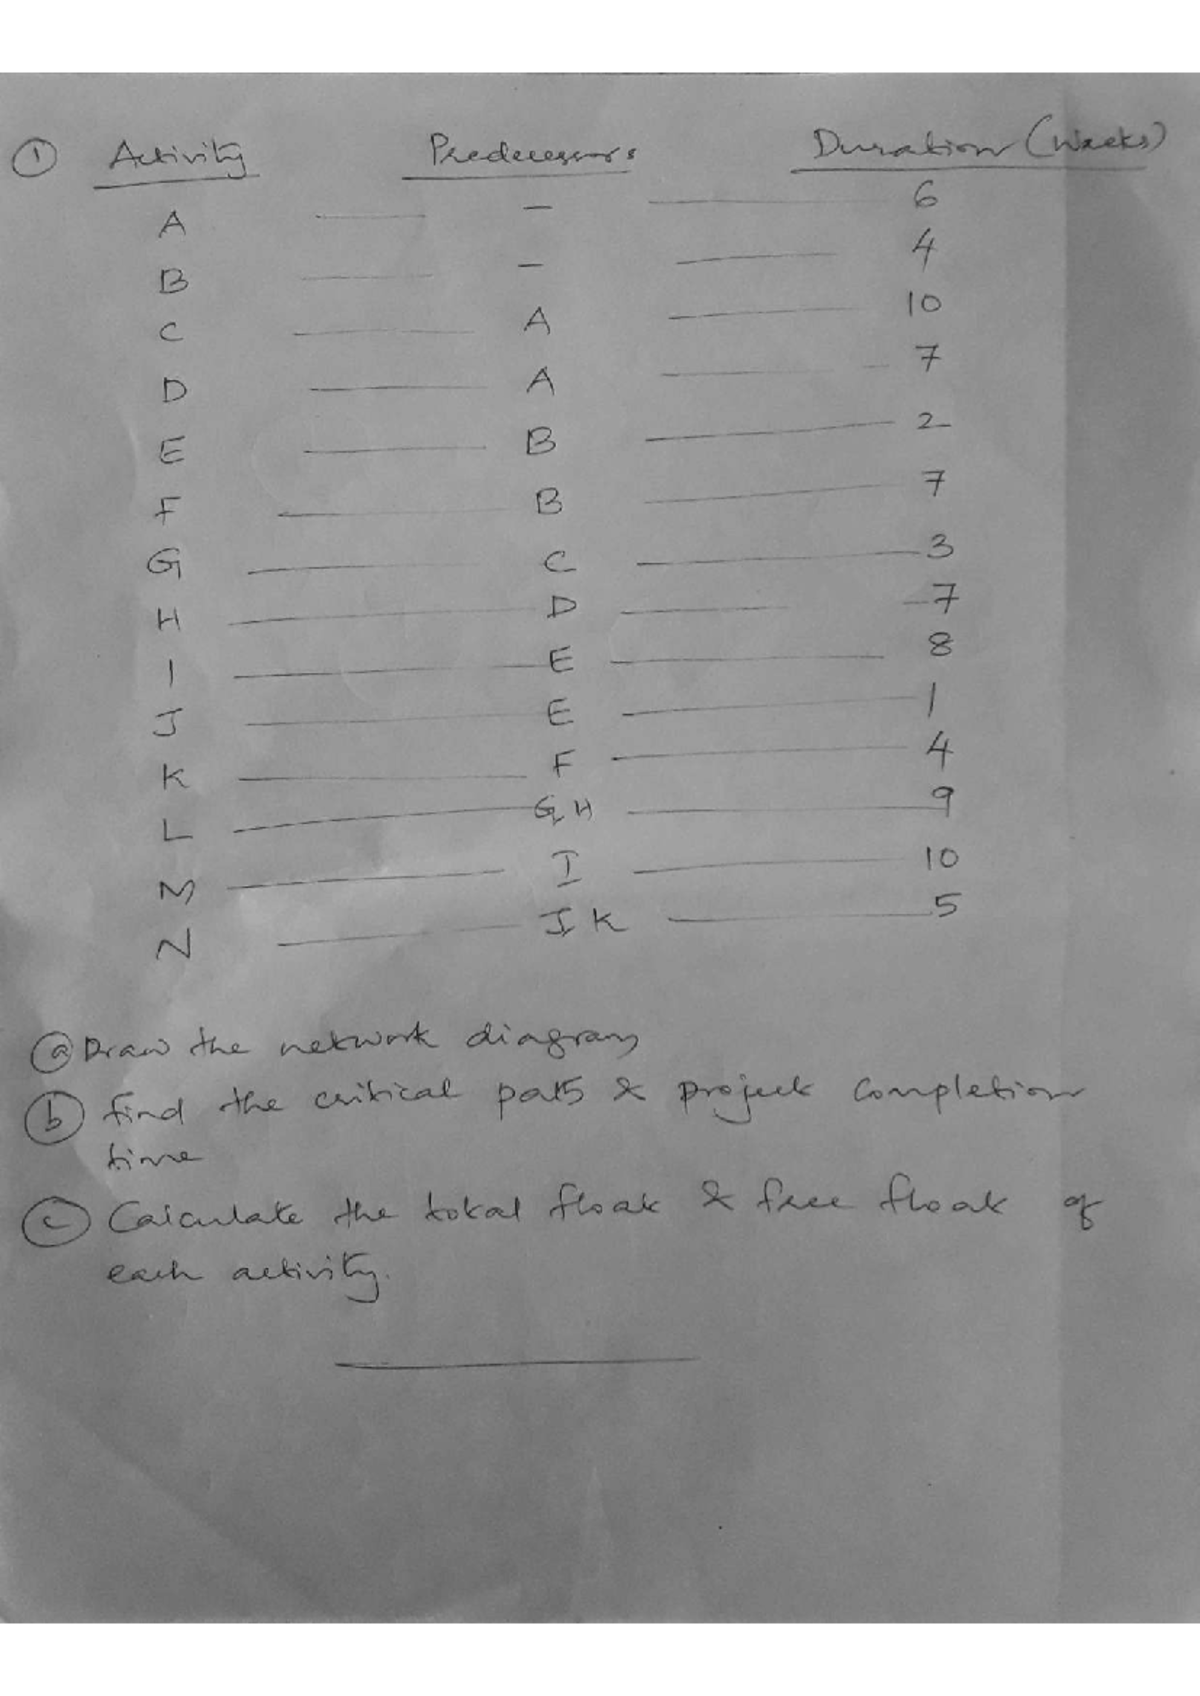 ① Activity Predecessors Duration (Weeks)
A — - — 6
B — - — 4
C — A — 10
D — A — 7
E — B — 2
F — B — 7
G — C — 3
H — D — 7
I — E — 8
J — E — 1
K — F — 4
L — G, H — 9
M — I — 10
N — J K — 5
ⓐ Draw the network diagram
ⓑ find the critical path & project completion
time
ⓒ Calculate the total float & free float of
each activity.